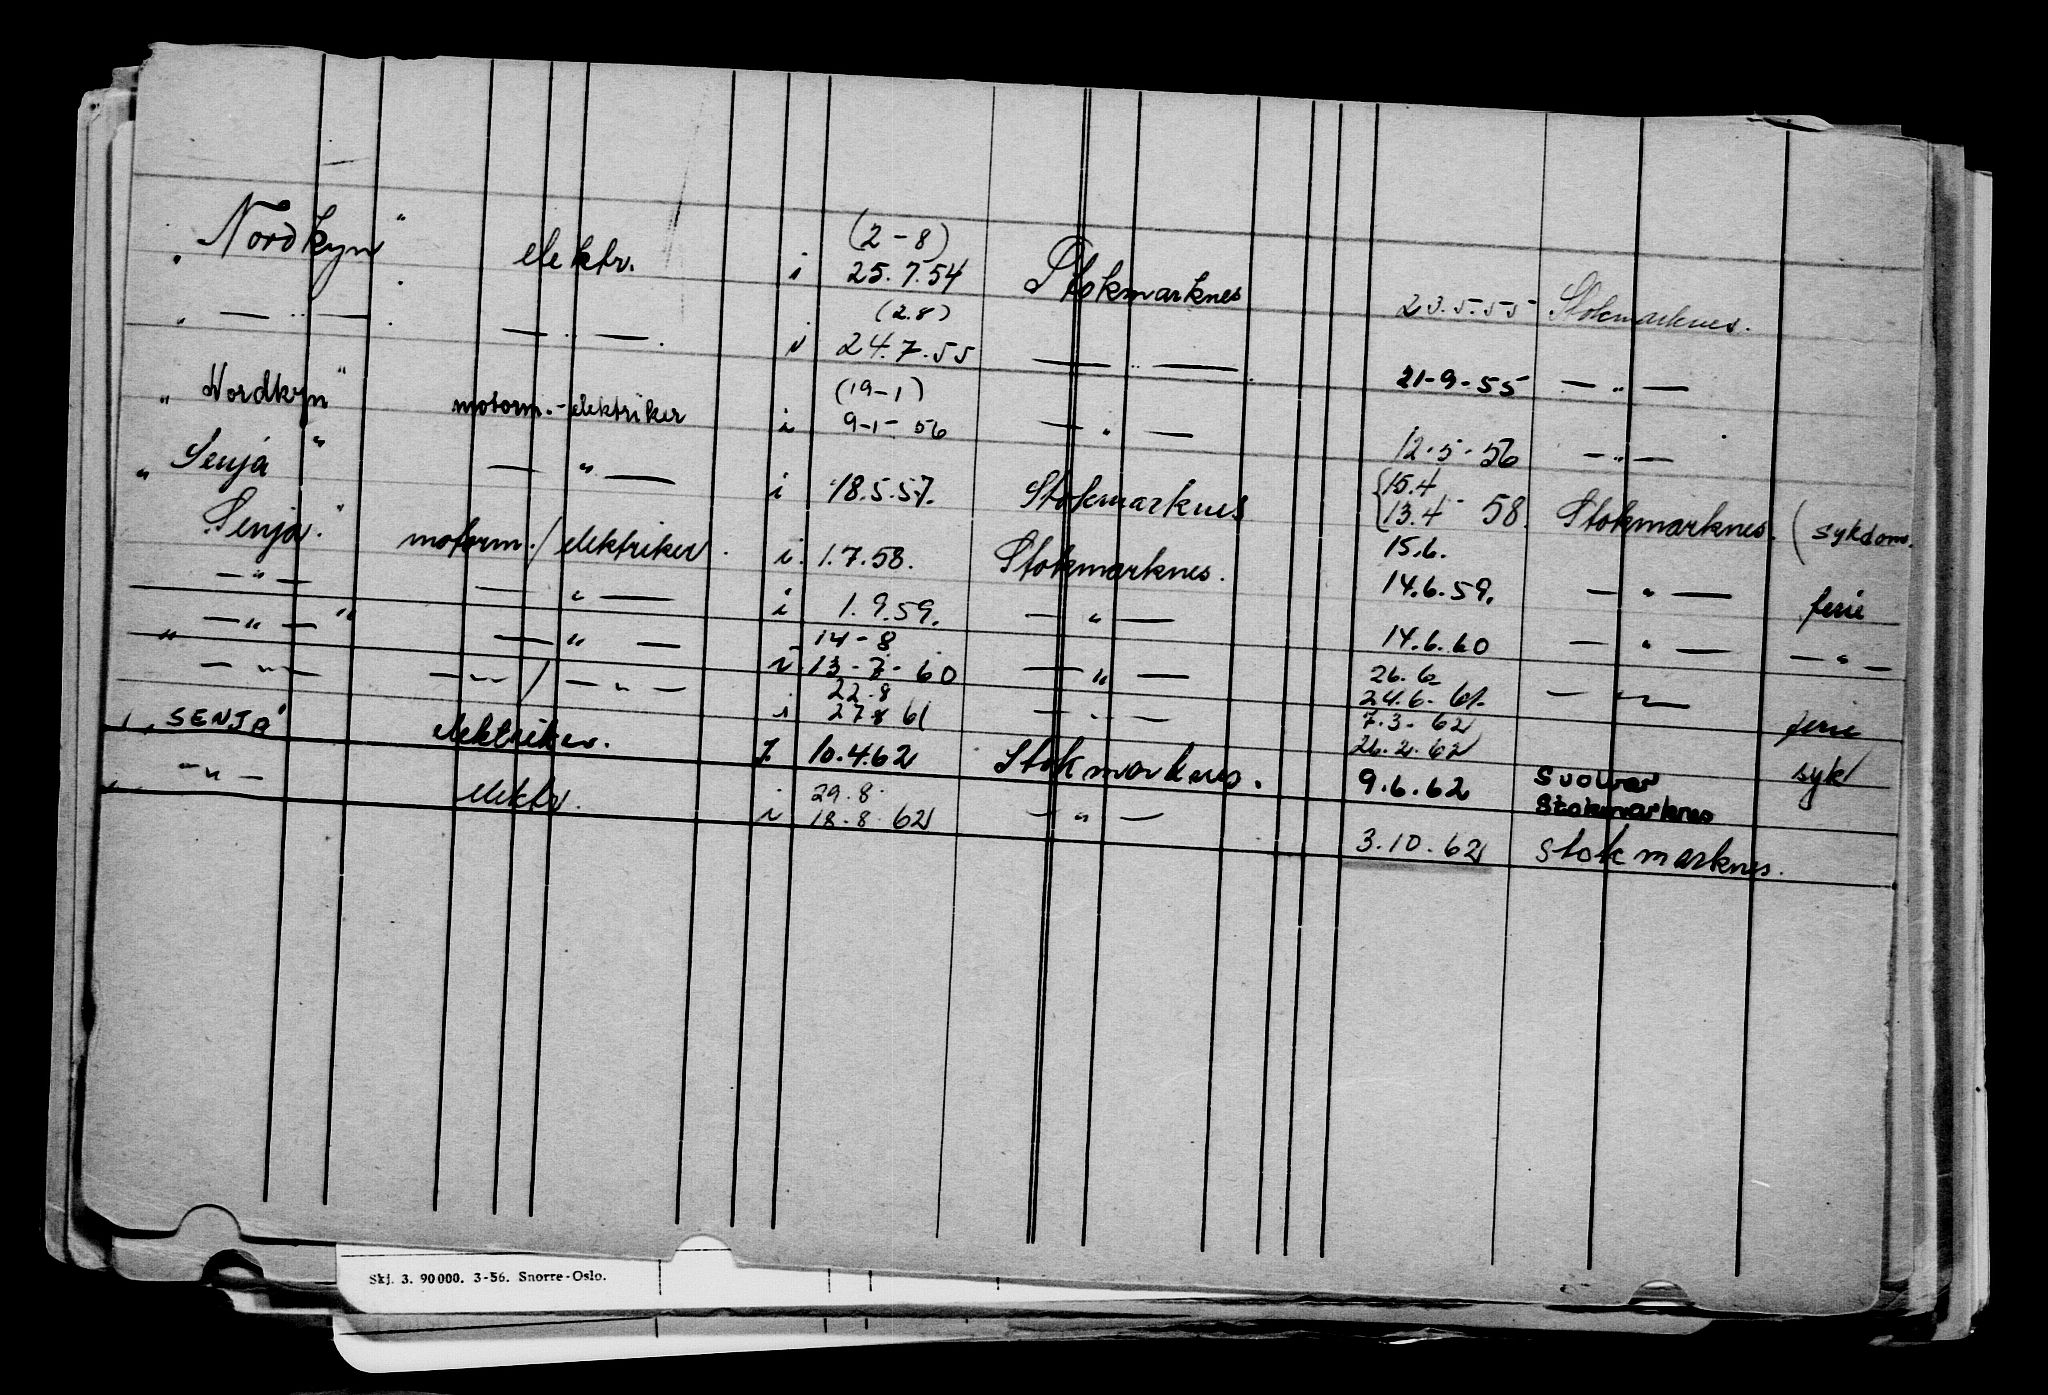 „Nordkyn" elektr. i (2-8) 25.7.54 Stokmarknes 23.5.55 Stokmarknes.
„ — .. — . — .. — . i (2.8) 24.7.55 — .. — . 21-9-55 — „ —
„Nordkyn" motorm.-elektriker i (19-1) 9-1-56 — „ — 12-5-56 — „ —
„Senja" — „ — i 18.5.57. Stokmarknes {15.4 13.4 - 58. Stokmarknes. (sykdom.
Senja." motorm./elektriker. i. 1.7.58. Stokmarknes. 15.6. 14.6.59. — „ — ferie
— „ — — „ — i 1.9.59. — „ — 14.6.60 — „ — — „ —
„ — „ — " — „ — i 14-8 13-7-60 — „ — 26.6 24.6.61. — „ — ferie
— „ — — „ — / — „ — i 22.8 27.8 61 — „ — 7.3.62 26.2.62 syk
„SENJA" elektriker. i 10.4.62 Stokmarknes. 9.6.62 Svolvær Stokmarknes
„ — „ — elektr. i 29.8. 18.8.62 — „ — 3.10.62 Stokmarknes.
Skj. 3. 90000. 3-56. Snorre-Oslo.